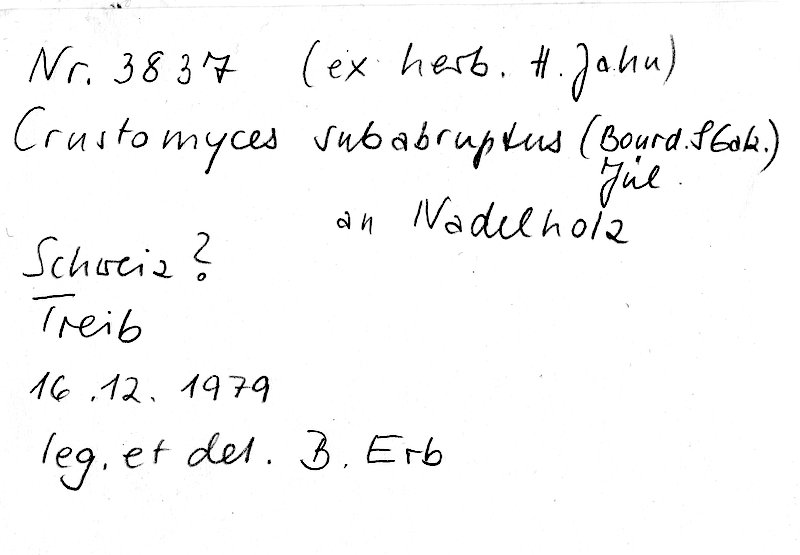 Nr. 3837 (ex herb. H. Jahn)
Crustomyces subabruptus (Bourd. & Galz.)
Jül.
an Nadelholz
Schweiz?
Treib
16.12.1979
leg. et det. B. Erb